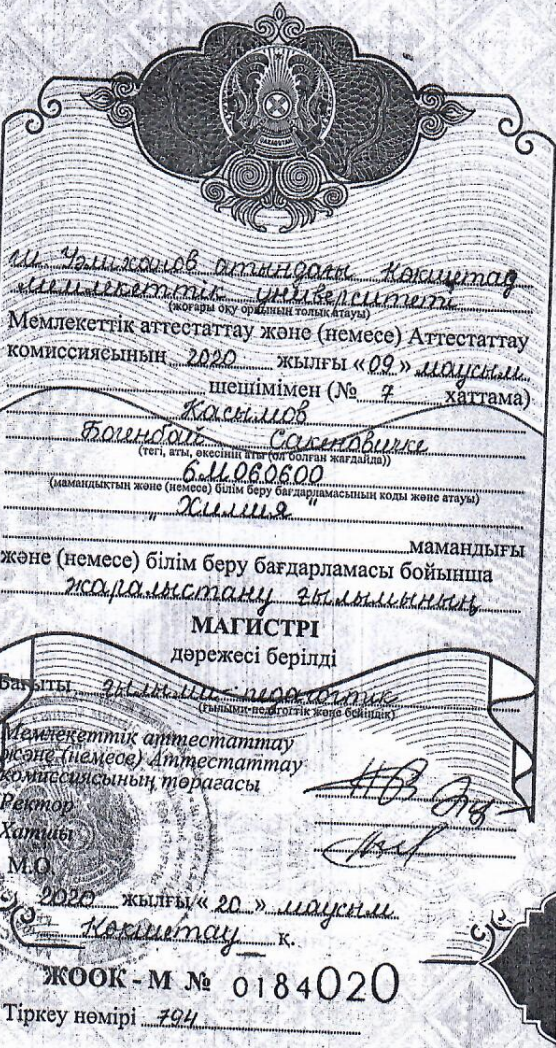 ҚАЗАҚСТАН
Ш. Уәлиханов атындағы Көкшетау
мемлекеттік университеті
(жоғары оқу орнының толық атауы)
Мемлекеттік аттестаттау және (немесе) Аттестаттау
комиссиясының 2020 жылғы «09» маусым
шешімімен (№ 7 хаттама)
Касымов
Богенбай Сакеновичке
(тегі, аты, әкесінің аты (ол болған жағдайда))
6М060600
(мамандықтың және (немесе) білім беру бағдарламасының коды және атауы)
"Химия"
мамандығы
және (немесе) білім беру бағдарламасы бойынша
жаралыстану ғылымының
МАГИСТРІ
дәрежесі берілді
Бағыты ғылыми-педагогтік
(ғылыми-педагогтік және бейіндік)
Мемлекеттік аттестаттау
және (немесе) Аттестаттау
комиссиясының төрағасы
Ректор
Хатшы
М.О.
2020 жылғы «20» маусым
Көкшетау қ.
ЖООК - М № 0184020
Тіркеу нөмірі 794